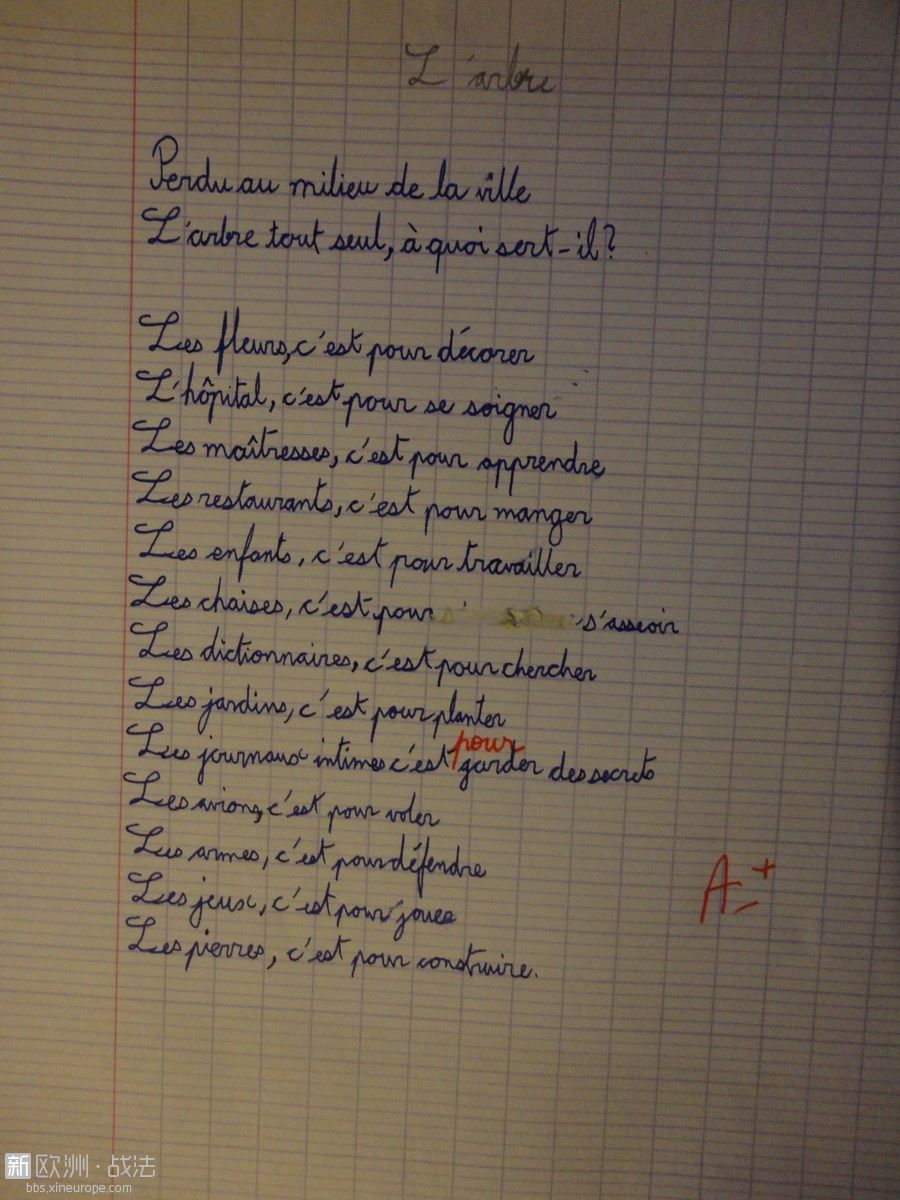 L'arbre
Perdu au milieu de la ville
L'arbre tout seul, à quoi sert-il?
Les fleurs, c'est pour décorer
L'hôpital, c'est pour se soigner
Les maîtresses, c'est pour apprendre
Les restaurants, c'est pour manger
Les enfants, c'est pour travailler
Les chaises, c'est pour s'asseoir
Les dictionnaires, c'est pour chercher
Les jardins, c'est pour planter
Les journaux intimes c'est pour garder des secrets
Les avions, c'est pour voler
Les armes, c'est pour défendre
Les jeux, c'est pour jouer
Les pierres, c'est pour construire.
A+
新欧洲·战法
bbs.xineurope.com